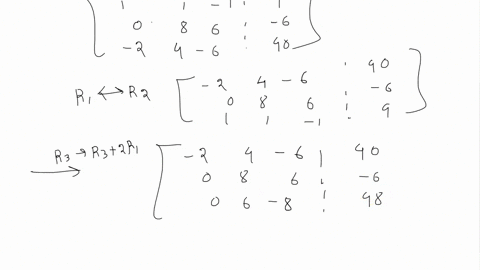 1 1 -1 ¦
0 8 6 ¦ -6
-2 4 -6 ¦ 40
R1 ↔ R2 [ -2 4 -6 ¦ 40 ]
0 8 6 ¦ -6
1 1 -1 ¦ 9
R3 → R3+2R1 [ -2 4 -6 | 40
0 8 6 ¦ -6
0 6 -8 ¦ 48